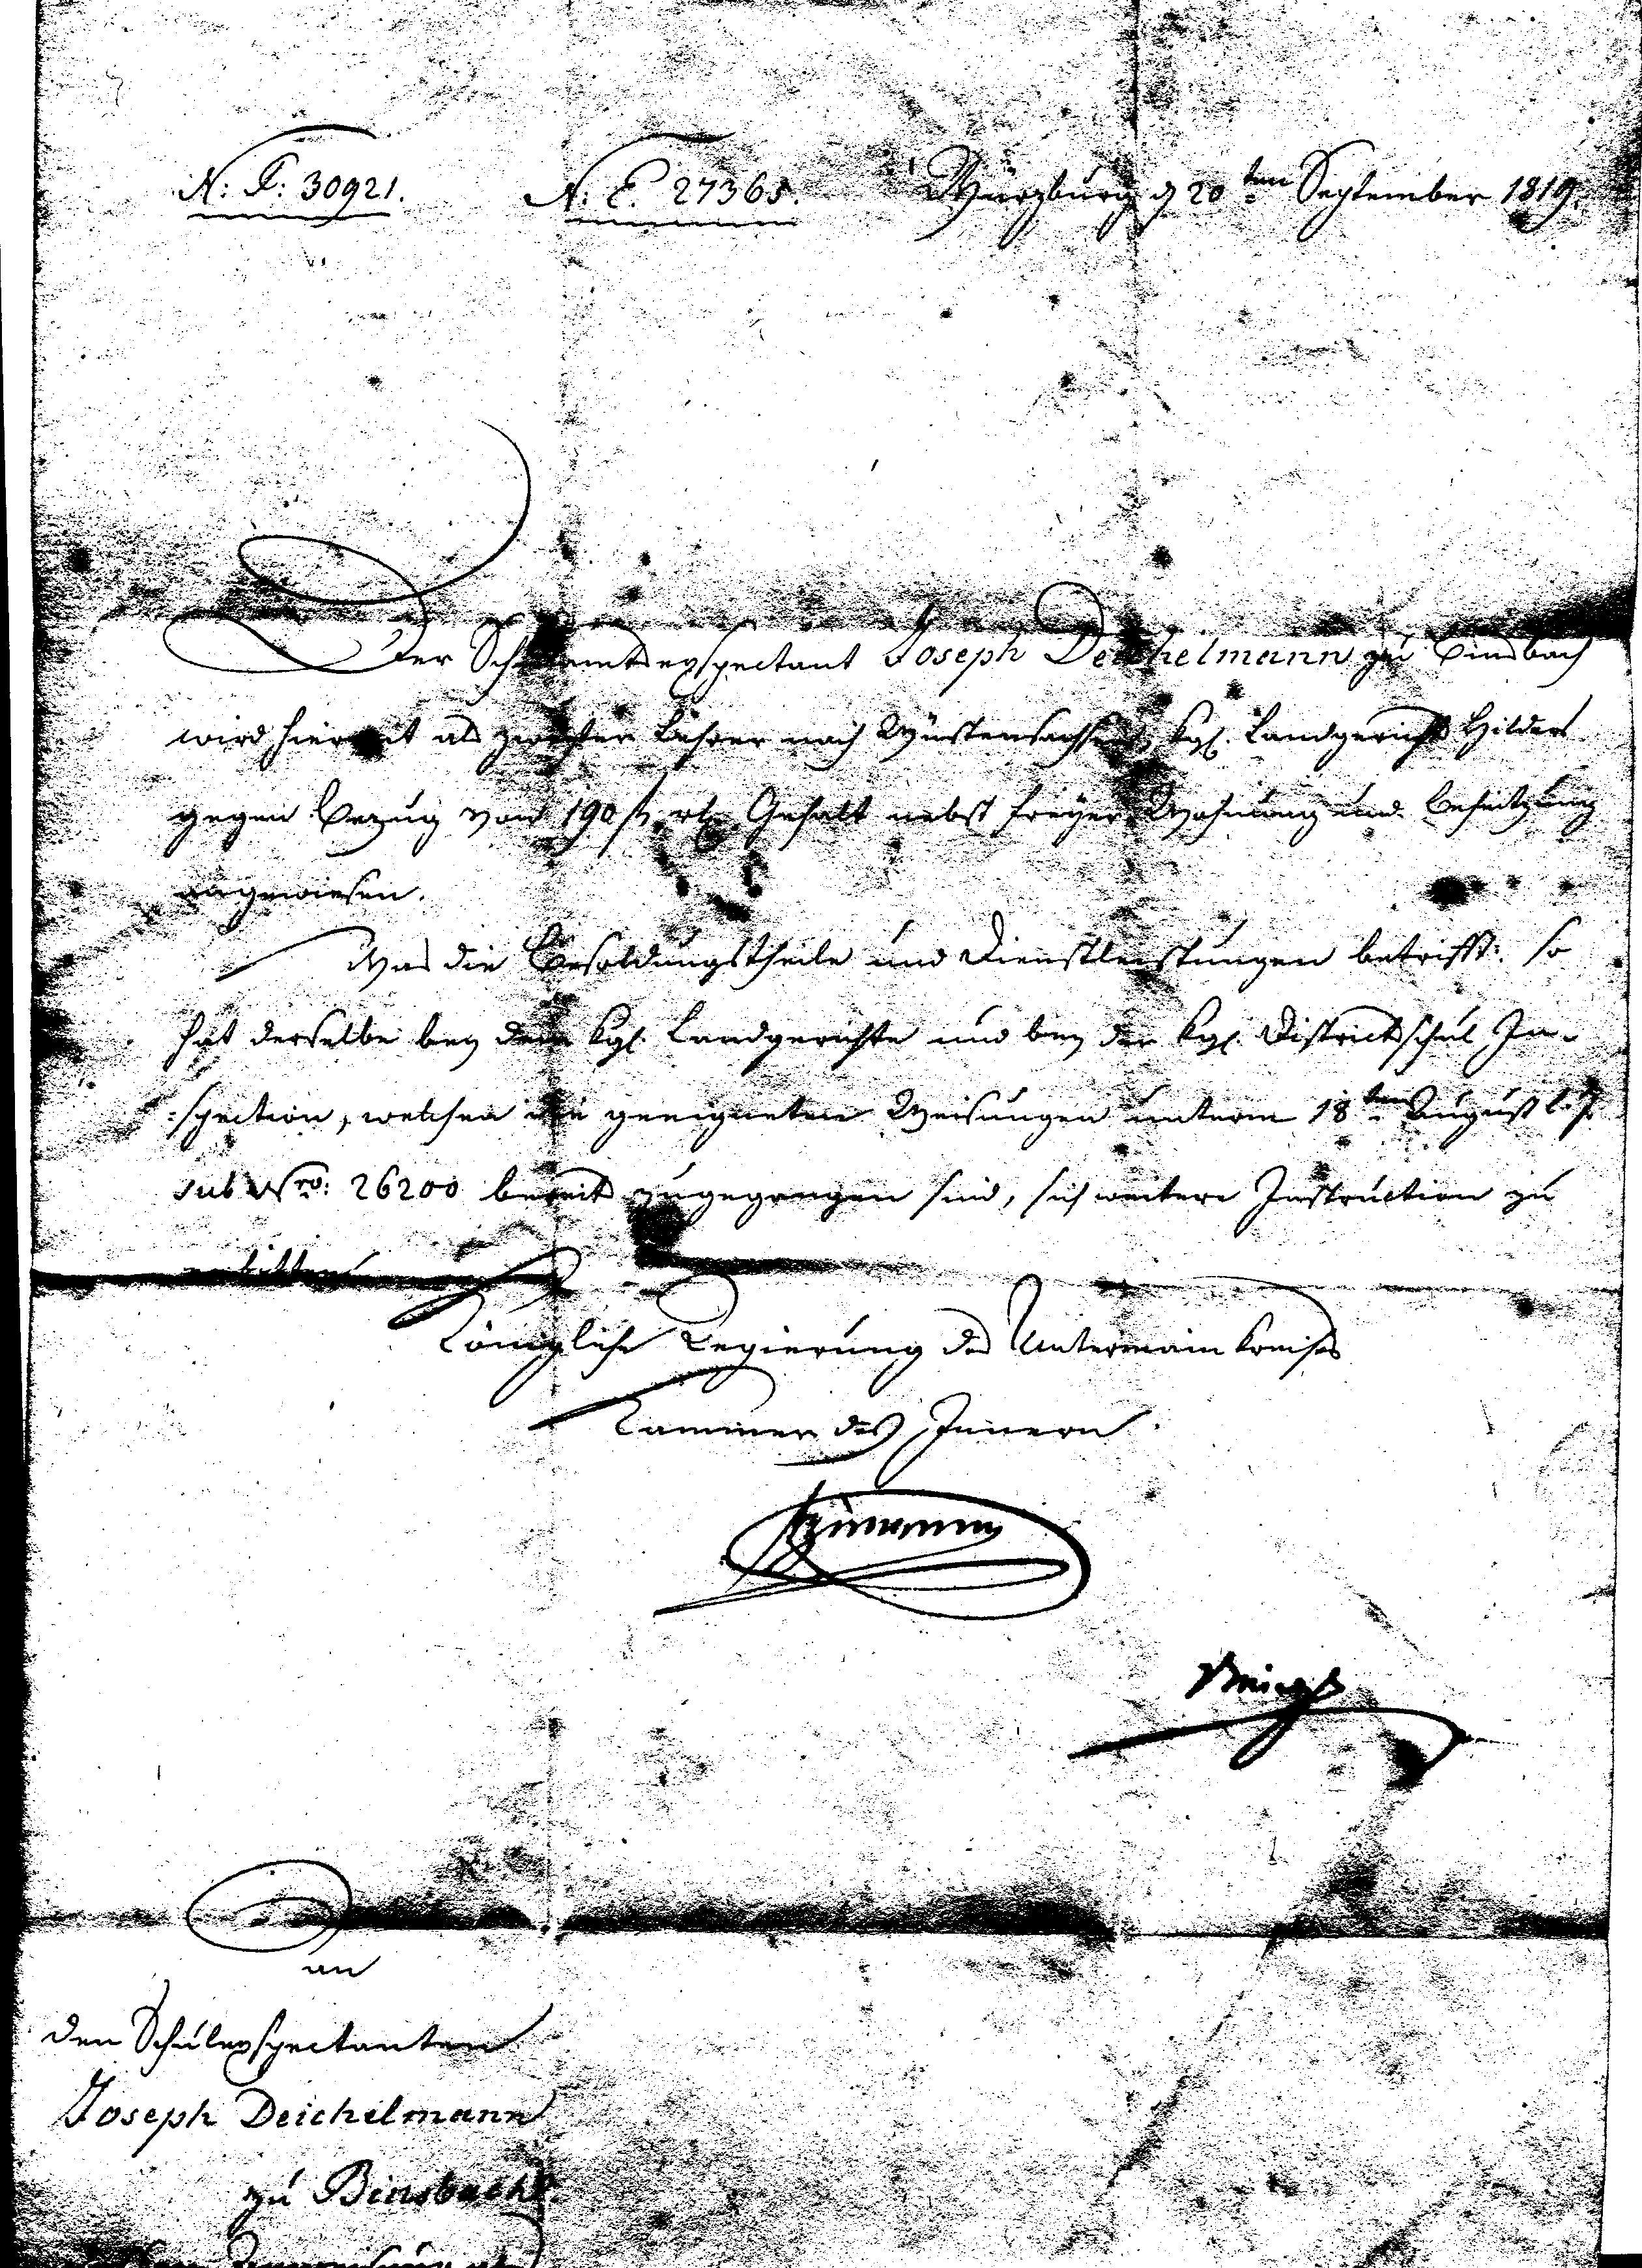 N: P: 30921. N: E. 27365. Würzburg d 20ten September 1819.
Der Schulamtsexspectant Joseph Deichelmann zu Binsbach
wird hiermit als zweyter Lehrer nach Wüstensachsen, kgl. Landgerichts Hilders
gegen Bezug von 190 fl. rh. Gehalt nebst freyer Wohnung und Beheitzung
angewiesen.
Was die Besoldungstheile und Dienstleistungen betrifft: so
hat derselbe bey dem kgl. Landgerichte und bey der kgl. Districtsschul In-
:spection, welchen die geeigneten Weisungen unterm 18ten August l. J.
sub Nro: 26200 bereits zugegangen sind, sich weitere Instruction zu
erbitten.
Königliche Regierung des Untermainkreises
Kammer des Innern
an
den Schulexspectanten
Joseph Deichelmann
zu Binsbach